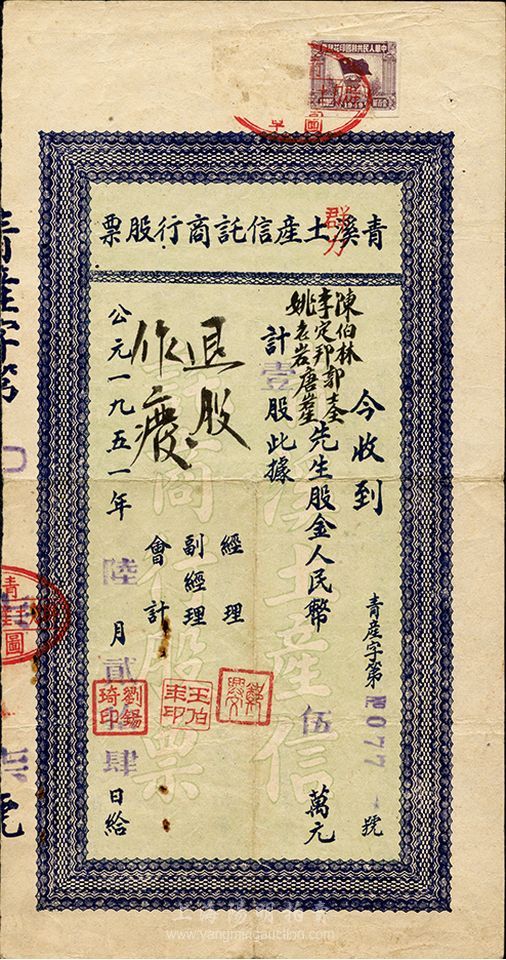 中華人民共和國印花稅票
青溪土產信託商行股票
群力
青產字第
0077
號
今收到
陳伯林
李定邦
姚老岩
唐
先生股金人民幣
伍
萬元
計壹股此據
退股
作廢
經理
副經理
會計
王伯年印
劉錫琦印
公元一九五一年
陸
月
貳
肆
日給
溪土產信
託商行股票
青產字第
號
上海陽明拍賣
www.yangmingauction.com